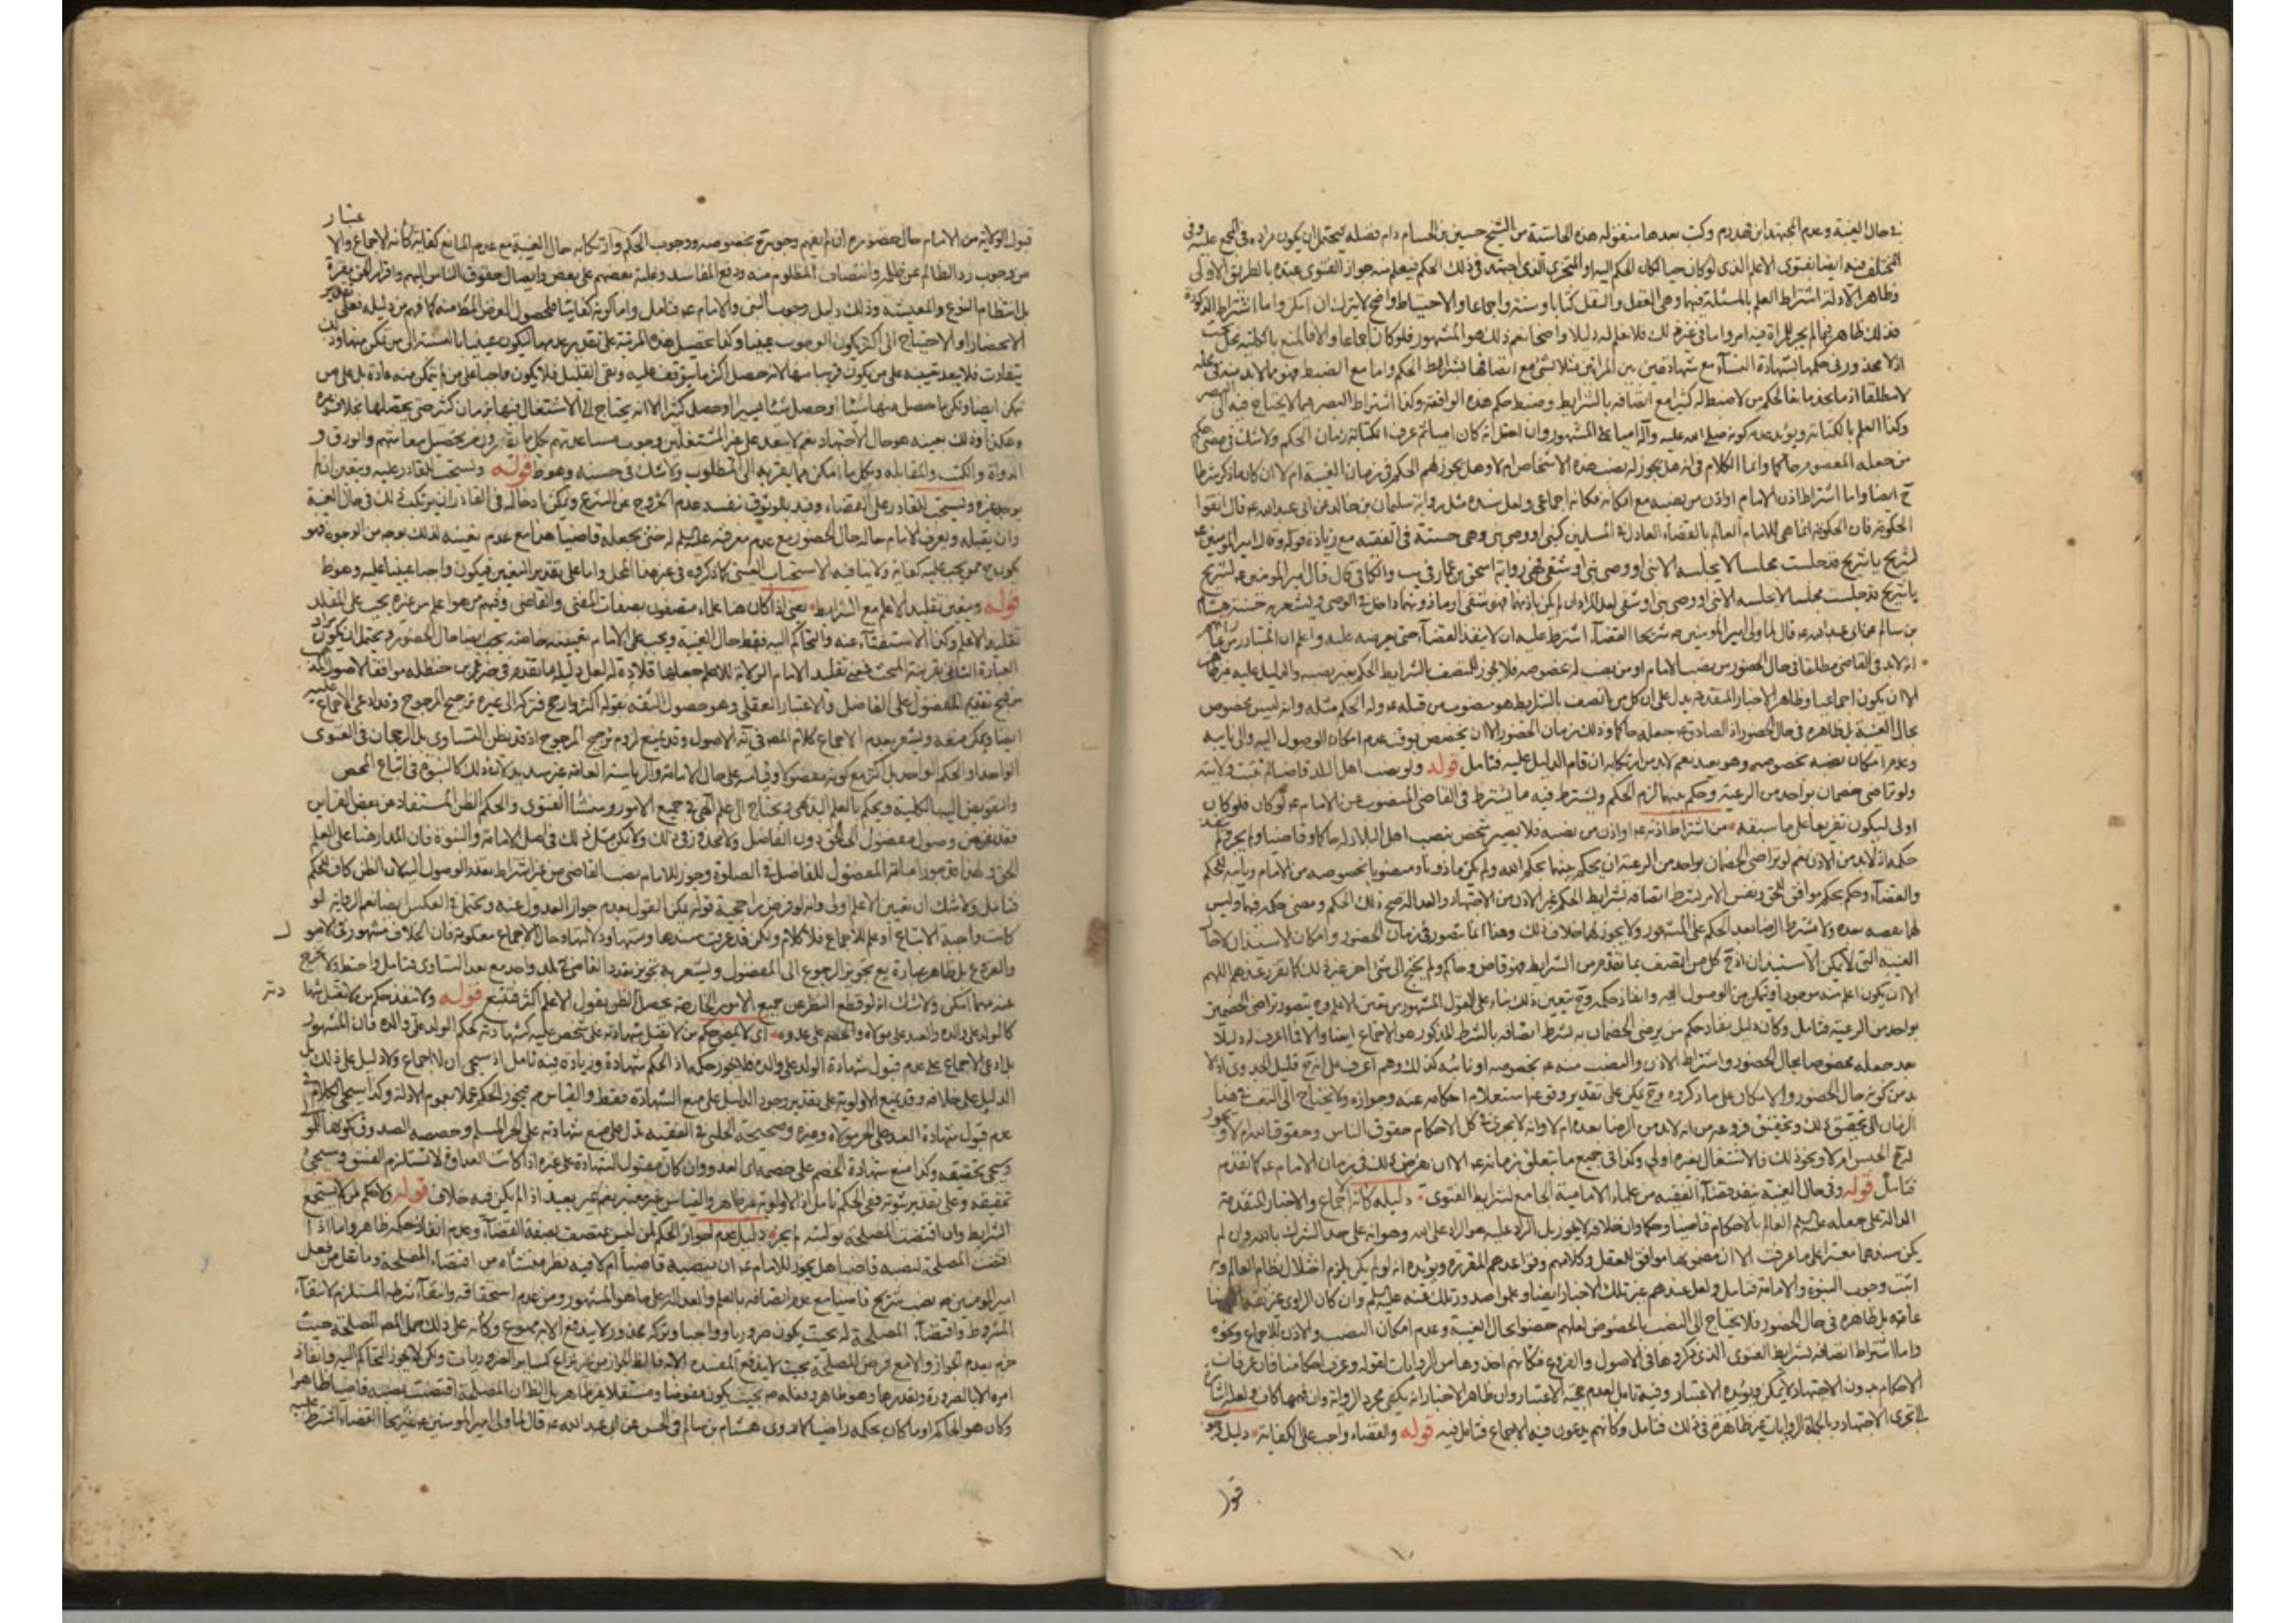 في حال الغيبة وعدم المجتهد ابن فهد ره وكتب بعدها منقوله هذه الحاشية من الشيخ حسين بن الحسام دام فضله يحتمل ان يكون مراده في المجمع عليه وفي
المختلف فيه ايضا بفتوى الاعلم الذي لو كان حيا لكان الحكم اليه او المتجزي الذي اجتهد في ذلك الحكم فيعلم منه جواز الفتوى عنده بالطريق الاولى
وظاهر الادلة اشتراط العلم بالمسئلة فيها وهي العقل والنقل كتابا وسنة واجماعا والاحتياط واضح لا يترك ان امكن واما اشتراط الذكورة
فذلك ظاهر فيما لم يجز للمراة فيه امر واما في غير ذلك فلا نعلم له دليلا واضحا نعم ذلك هو المشهور فلو كان اجماعا والا فالمنع بالكلية محل بحث
اذ لا محذور في حكمها بشهادة النساء مع شهادة بين المراتين مثلا بشئ مع اتصافها بشرائط الحكم واما مع الضبط فهو مما لا بد منه في محله
لا مطلقا اذ ما نجد مانعا لحكم من لا ضبط له كثيرا مع اتصافه بالشرايط وضبط حكم هذه الواقعة وكذا اشتراط البصر فيما لا يحتاج فيه الى البصر
وكذا العلم بالكتابة ويؤيد عدمه كونه صلى الله عليه وآله اميا على المشهور وان احتمل انه كان اميا ثم عرف الكتابة زمان الحكم ولا شك في مضي حكم
من جعله المعصوم حاكما وانما الكلام في انه هل يجوز له نصب هذه الاشخاص ام لا وهل يجوز لهم الحكم في زمان الغيبة ام لا ان كان ما ذكر شرطا
ح ايضا واما اشتراط اذن الامام او اذن من نصبه مع امكانه فكانه اجماعي ولعل سنده مثل رواية سليمان بن خالد عن ابي عبدالله ع قال اتقوا
الحكومة فان الحكومة انما هي للامام العالم بالقضاء العادل في المسلمين كنبي او وصي نبي وهي حسنة في الفقيه مع زيادة قوله وقال امير المؤمنين ع
لشريح يا شريح قد جلست مجلسا لا يجلسه الا نبي او وصي نبي او شقي وفي رواية اسحق بن عمار في يب والكافي قال قال امير المؤمنين ع لشريح
يا شريح قد جلست مجلسا لا يجلسه الا نبي او وصي نبي او شقي لعل المراد ان لم يكن باذنهما فهو شقي او ماذونهما داخل في الوصي ويشعر به حسنة هشام
بن سالم عن ابي عبدالله ع قال لما ولى امير المؤمنين ع شريحا القضاء اشترط عليه ان لا ينفذ القضاء حتى يعرضه عليه واعلم ان المتبادر من
انه لا بد في القاضي مطلقا في حال الحضور من نصب الامام او من نصب له بخصوصه فلا يجوز للمتصف بالشرايط الحكم بغير نصبه والدليل عليه غير ظاهر
الا ان يكون اجماعيا وظاهر الاخبار المتقدمة يدل على ان كل من اتصف بالشرايط هو منصوب من قبله ع وله الحكم مثله وانه ليس مخصوص
بحال الغيبة بل ظاهره في حال الحضور اذ الصادق ع جعله حاكما وذلك زمان الحضور الا ان يخصص بوقت عدم امكان الوصول اليه والى نايبه
وعدم امكان نصبه بخصوصه وهو بعيد نعم لا بد من ارتكابه ان قام الدليل عليه فتامل قوله ولو نصب اهل البلد قاضيا لم تثبت ولايته
ولو تراضى خصمان بواحد من الرعية وحكم بينهما لزم الحكم ويشترط فيه ما يشترط في القاضي المنصوب عن الامام ع لو كان فلو كان
اولى ليكون تفريعا على ما سبقه من اشتراط اذنه ع او اذن من نصبه فلا يصير شخص بنصب اهل البلاد له حاكما وقاضيا ولم يجز نفوذ
حكمه اذ لا بد من الاذن نعم لو تراضى الخصمان بواحد من الرعية ان يحكم بينهما بحكم الله ولم يكن ماذونا ومنصوبا بخصوصه من الامام ونايبه للحكم
والقضاء وحكم بحكم موافق للحق ونفس الامر بشرط اتصافه بشرايط الحكم غير الاذن من الاجتهاد والعدالة صح ذلك الحكم ومضى حكمه فيها وليس
لهما نقضه بعده ولا يشترط الرضا بعد الحكم على المشهور ولا يجوز لهما خلاف ذلك وهذا انما يتصور في زمان الحضور وامكان الاستيذان لا حال
الغيبة التي لا يمكن الاستيذان اذ ح كل من اتصف بما تقدم من الشرايط فهو قاض وحاكم ولم يحتج الى شئ آخر غير ذلك كما تقرر عندهم اللهم
الا ان يكون اعلم منه موجودا ويمكن من الوصول اليه وانفاذ حكمه وح يتعين ذلك بناء على القول المشهور من تعين الاعلم وح يتصور تراضي الخصمين
بواحد من الرعية فتامل وكان دليل نفاذ حكم من يرضى الخصمان به بشرط اتصافه بالشرط المذكور هو الاجماع ايضا والا فما اعرف له دليلا
بعد جعله مخصوصا بحال الحضور واشتراط الاذن والنصب منه ع بخصوصه او نائبه كذلك وهم اعرف على انه ح قليل الجدوى اذ لا
بد من كونه حال الحضور والامكان على ما ذكروه وح يمكن على تقدير وقوعها استعلام احكامه عنه وجوازه ولا يحتاج الى التعب في هذا
الزمان الى تحقيق ذلك وتحقيق فروعه من انه لا بد من الرضا بعده ام لا وانه لا يجري في كل الاحكام حقوق الناس وحقوق الله ام لا ويجوز
له ح الحبس ام لا ونحو ذلك فالاشتغال بغيره اولى وكذا في جميع ما يتعلق بزمانه ع الا ان يفرض ذلك في زمان الامام ع كما تقدم
فتامل قوله وفي حال الغيبة ينفذ قضاء الفقيه من علماء الامامية الجامع لشرايط الفتوى دليله كانه اجماع والاخبار المتقدمة
الدالة على جعله عليهم العالم بالاحكام قاضيا وحكما وان خلافه لا يجوز بل الراد عليه هو الراد على الله وهو انه على حد الشرك بالله وان لم
يكن سندها معتبرا على ما عرفت الا ان مضمونها موافق للعقل وكلامهم وقواعدهم المقررة ويؤيده انه لو لم يكن يلزم اختلال نظام العالم وبه
اثبت وجوب النبوة والامامة فتامل ولعل عندهم غير تلك الاخبار ايضا وعلموا صدور تلك عنه عليه السلم وان كان الراوي غير ثقة
عامه بل ظاهره في حال الحضور فلا يحتاج الى النصب بالخصوص لعلهم خصوا بحال الغيبة وعدم امكان النصب والاذن للاجماع ونحوه
واما اشتراط اتصافه بشرايط الفتوى الذي ذكروها في الاصول والفروع فكانهم اخذوها من الروايات لقوله وعرف احكامنا فان عرفان
الاحكام بدون الاجتهاد لا يمكن ويؤيده الاعتبار وفيه تامل لعدم حجية الاعتبار وان ظاهر الاخبار انه يكفي مجرد الرواية وان فهمها كاف
في تجزي الاجتهاد وبالجملة الروايات غير ظاهرة في ذلك فتامل وكانهم يدعون فيه الاجماع فتامل فيه قوله والقضاء واجب على الكفاية دليل وجوب
قبول
قبول الولاية من الامام حال حضوره ع ان لم يفهم وجوبه بخصوصه ووجوب الحكم وارتكابه حال الغيبة مع عدم المانع كفاية كانه الاجماع والاعتبار
من وجوب رد الظالم عن ظلمه وانتصاف المظلوم منه ودفع المفاسد وغلبة بعضهم على بعض وايصال حقوق الناس اليهم واقرار الحق مقره
بل انتظام النوع والمعيشة وذلك دليل وجوب النبي والامام ع فتامل واما كونه كفائيا فلحصول الغرض المط منه كما فهم من دليله فعلى تقدير
الانحصار او الاحتياج الى اكثر يكون الوجوب عينيا وكذا تحصيل هذه المرتبة على تقدير عدمها ليكون عينيا بالنسبة الى من تمكن منها وذلك
يتفاوت فلا يبعد تعيينه على من يكون قريبا منها لانه حصل اكثر ما يتوقف عليه وبقي القليل فلا يكون واجبا على من لم يتمكن منه عادة بل على من
تمكن ايضا ولكن ما حصل منها شيئا او حصل شيئا يسيرا او حصل كثيرا الا انه يحتاج الى الاشتغال فيها بزمان كثير حتى يحصلها بخلاف غيره
وهكذا وذلك بعينه هو حال الاجتهاد نعم لا يبعد على غير المشتغلين وجوب مساعدتهم بكل ما يقدرون من تحصيل معاشهم والورق و
الدواة والكتب والمقابلة وبكل ما امكن مما يقربه الى المطلوب ولا شك في حسنه وهو ظ قوله ويستحب للقادر عليه ويتعين ان لم
يوجد غيره ويستحب للقادر على القضاء وقيد بالوثوق بنفسه عدم الخروج عن الشرع ويمكن ادخاله في القادر ان يرتكب ذلك في حال الغيبة
وان يقبله ويعرف الامام حاله حال الحضور مع عدم معرفته عليه السلم له حتى يجعله قاضيا هذا مع عدم تعيينه لذلك بوجه من الوجوه فهو
يكون ح ممن يجب عليه كفاية ولا ينافيه الاستحباب العيني كما ذكروه في غير هذا المحل واما على تقدير التعيين فيكون واجبا عينيا عليه وهو ظ
قوله ويتعين تقليد الاعلم مع الشرايط يعني اذا كان هنا علماء متصفون بصفات المفتي والقاضي وفيهم من هو اعلم من غيره يجب على المقلد
تقليد الاعلم وكذا الاستفتاء عنه والتحاكم اليه فقط حال الغيبة ويجب على الامام تعيينه خاصة يجب ايضا حال الحضور ويحتمل ان يكون مراد
العبارة الثاني بقرينة البحث فمعنى تقليد الامام الولاية للاعلم جعلها قلادة له لعل دليله ما تقدم في خبر عمر بن حنظلة موافقا للاصول المذهب
من قبح تقديم المفضول على الفاضل والاعتبار العقلي وهو حصول الثقة بقوله اكثر وارجح فتركه الى غيره ترجيح المرجوح وقد ادعى الاجماع عليه
ايضا ويمكن منعه ويشعر بعدم الاجماع كلام المص في ية الاصول وقد يمنع لزوم ترجيح المرجوح اذ قد يظن التساوي بل الرجحان في الفتوى
الواحد او الحكم الواحد بل اكثر مع كونه مفضولا وقياسه على حال الامامة والرياسة العامة غير سديد لانه ذلك كالنبوة في اتباع المحض
والتفويض اليه بالكلية ويحكم بالعلم البديهي ويحتاج الى علم الهي في جميع الامور ومنشأ الفتوى والحكم الظن المستفاد من بعض القراين
فقد يفرض وصول مفضول الى الحق دون الفاضل ولا محذور في ذلك ولا يمكن مثل ذلك في اصل الامامة والنبوة فان المدار هنا على العلم
الحق ولهذا قد جوز امامة المفضول للفاضل في الصلوة وجوز للامام نصب القاضي من غير اشتراط تعذر الوصول اليه لان الظن كاف للحكم
فتامل ولا شك ان تعيين الاعلم اولى وانه لو فرض راجحية قوله يمكن القول بعدم جواز العدول عنه ويحتمل في العكس ايضا نعم الرواية لو
كانت واجبة الاتباع او علم الاجماع فلا كلام ولكن قد عرفت سندها ومتنها ودلالتها وحال الاجماع معلومة فان الخلاف مشهور في الاصول
والفروع بل ظاهر عبارة يع تجويز الرجوع الى المفضول ويشعر به تجويز تعدد القاضي في بلد واحد مع بعد التساوي فتامل واحتط ولا تخرج
عنه مهما امكن ولا شك انه لو قطع النظر عن جميع الامور الخارجة يحصل الظن بقول الاعلم اكثر فتتبع قوله ولا ينفذ حكم من لا تقبل شهادته
كالولد على والده والعبد على مولاه والخصم على عدوه اي لا يمضي حكم من لا تقبل شهادته على شخص عليه كشهادته لحكم الولد على والده فان المشهور
بل ادعي الاجماع على عدم قبول شهادة الولد على والده فلا يجوز حكمه اذ الحكم شهادة وزيادة فيه تامل اذ سيجئ ان لا اجماع ولا دليل على ذلك بل
الدليل على خلافه وقد يمنع الاولوية على تقدير وجود الدليل على منع الشهادة فقط والقياس مم فيجوز الحكم عملا بعموم الادلة وكذا سيجئ الكلام في
عدم قبول شهادة العبد على الحر مولاه وغيره وصحيحة الحلبي في الفقيه تدل على منع شهادته على الحر المسلم وخصصه الصدوق بكونها لمولاه
وسيجئ تحقيقه وكذا منع شهادة الخصم على خصمه اي العدو وان كان مقبول الشهادة على غيره اذا كانت العداوة لا تستلزم الفسق وسيجئ
تحقيقه وعلى تقدير ثبوته ففي الحكم تامل اذ الاولوية غير ظاهر والقياس غير معتبر نعم غير بعيد اذ لم يكن فيه خلاف قوله ولا حكم لمن لا يستجمع
الشرايط وان اقتضت المصلحة توليته لم يجز دليل عدم جواز الحكم لمن ليس متصفا بصفة القضاء وعدم انفاذ حكمه ظاهر واما اذا
اقتضت المصلحة لنصبه قاضيا هل يجوز للامام ع ان ينصبه قاضيا ام لا فيه نظر منشأه من اقتضاء المصلحة وما نقل من فعل
امير المؤمنين ع نصب شريح قاضيا مع عدم اتصافه بالعلم والعدالة على ما هو المشهور ومن عدم استحقاقه وانتفاء شرطه المستلزم لانتفاء
المشروط واقتضاء المصلحة له بحيث يكون ضروريا وواجبا وتركه محذورا لا يندفع الا به ممنوع وكانه على ذلك حمل المص المصلحة حيث
جزم بعدم الجواز والا مع فرض المصلحة بحيث لا يندفع المفسدة الا به فالظ الجواز من غير نزاع كسائر الضروريات ولكن لا يجوز التحاكم اليه وانفاذ
امره الا بالضرورة وتقدر بقدرها وهو ظاهر وفعله ع بحيث يكون مفوضا ومستقلا غير ظاهر بل الظ ان المصلحة اقتضت نصبه قاضيا ظاهرا
وكان هو الحاكم او ما كان بحكمه راضيا كما روى هشام بن سالم في الحسن عن ابي عبد الله ع قال لما ولى امير المؤمنين ع شريحا القضاء اشترط عليه